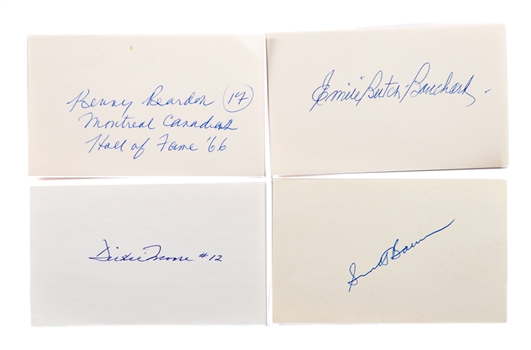 Kenny Reardon (17)
Montreal Canadiens
Hall of Fame '66
Emile "Butch" Bouchard
Dickie Moore #12